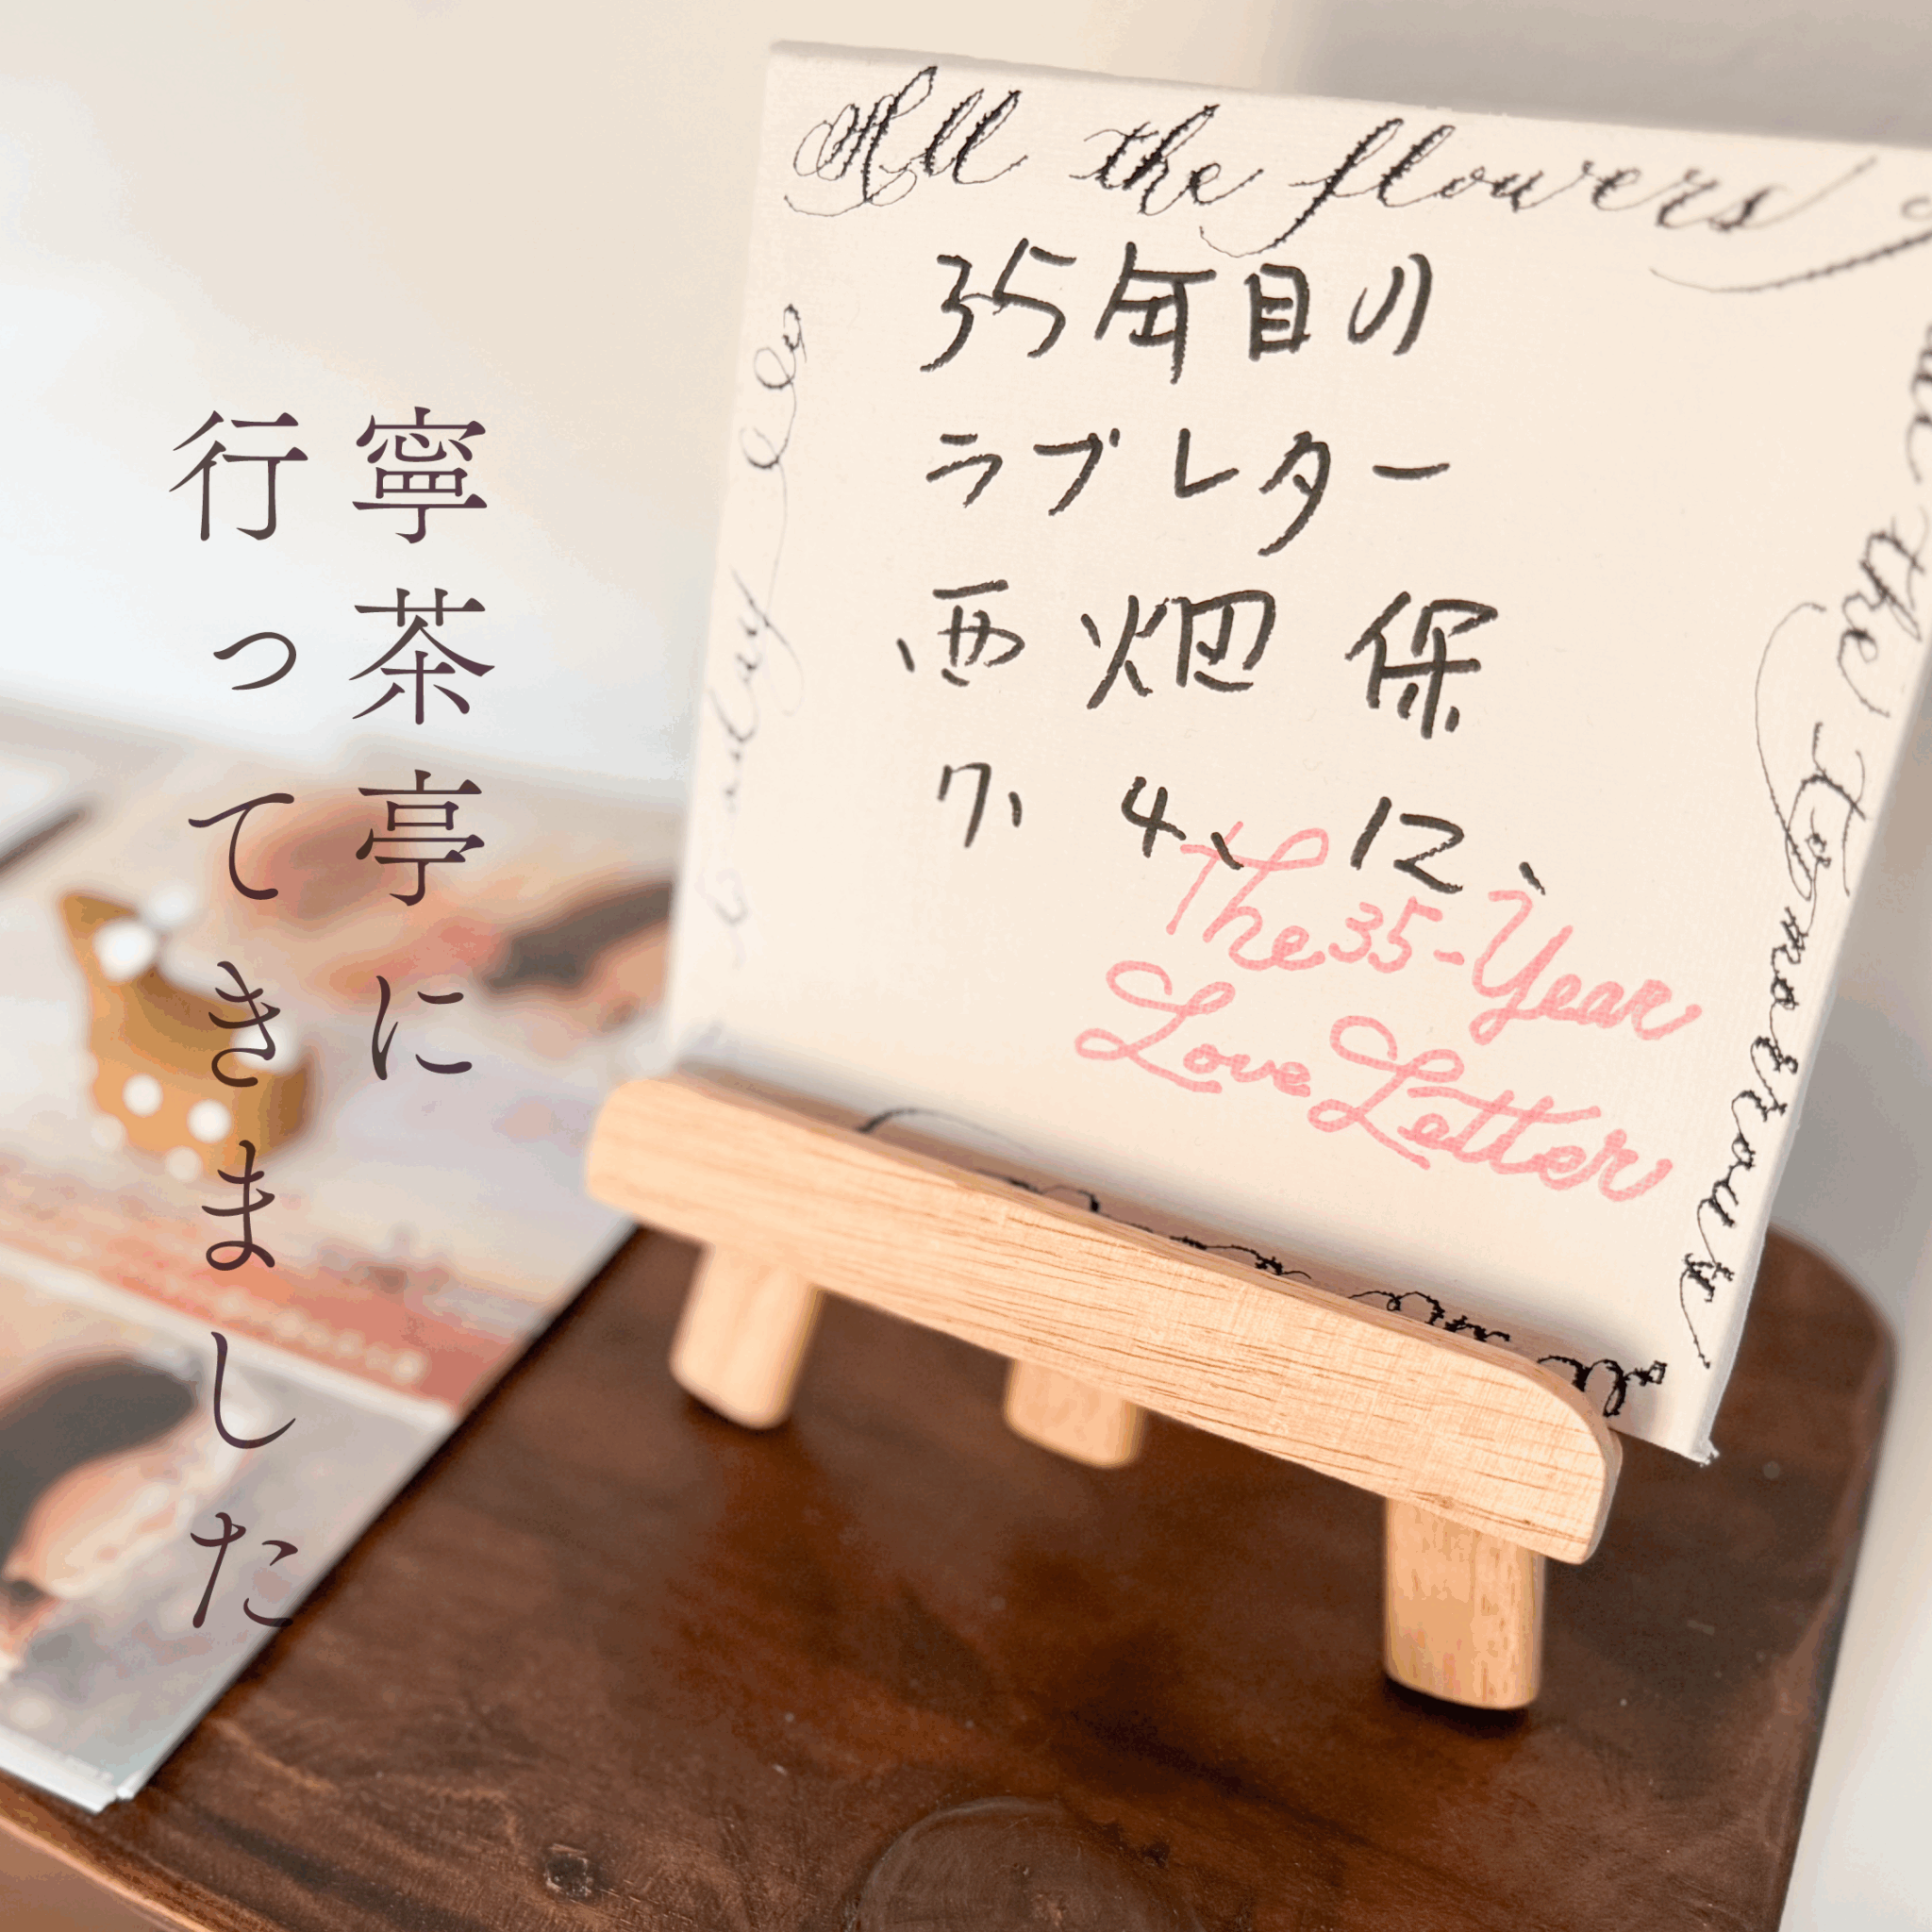 寧茶亭に
行ってきました
All the flowers
35年目の
ラブレター
西畑 保
7、4、12、
The 35-Year
Love Letter
the tomorrows
today